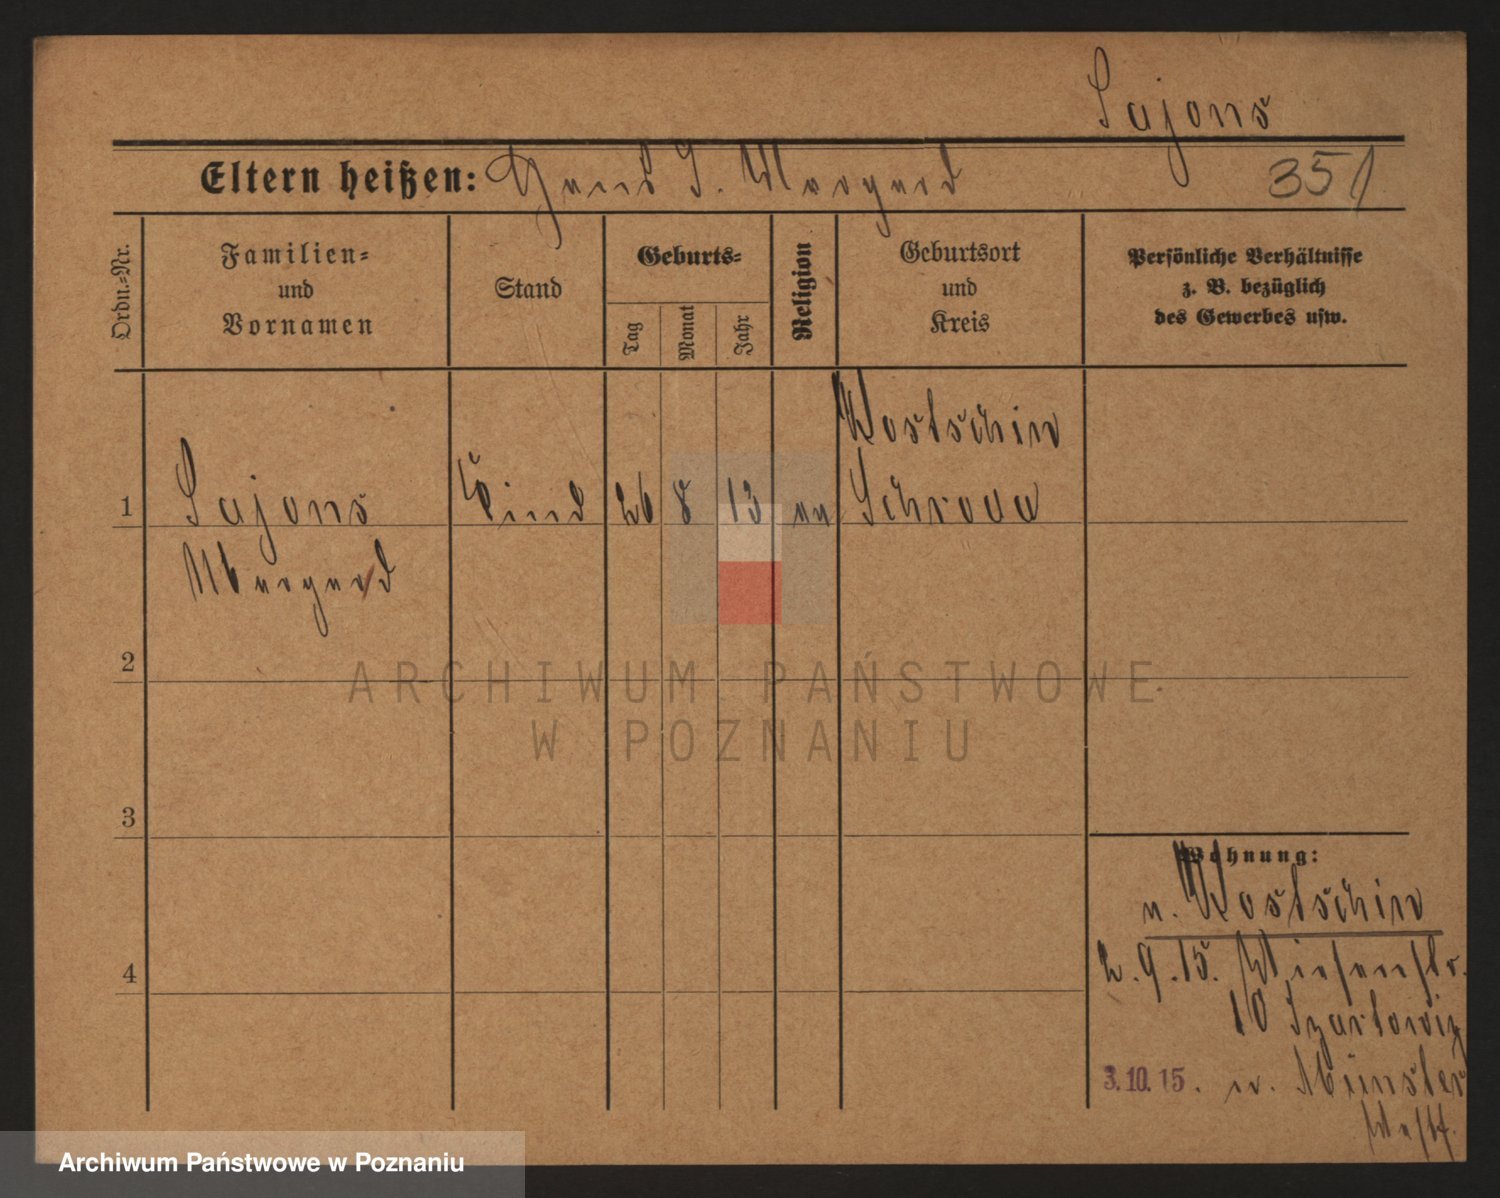 Sajons
Eltern heißen: Hans S. Margard
351
Ordn.-Nr.
Familien-
und
Vornamen
Stand
Geburts-
Tag
Monat
Jahr
Religion
Geburtsort
und
Kreis
Persönliche Verhältnisse
z. B. bezüglich
des Gewerbes usw.
Kostschin
1 Sajons Kind 26 8 13 Schroda
Margard
2
3
4
Wohnung:
n. Kostschin
2.9.15. Wiesenstr.
10
3.10.15. n. Münster
Westf.
ARCHIWUM PAŃSTWOWE
W POZNANIU
Archiwum Państwowe w Poznaniu